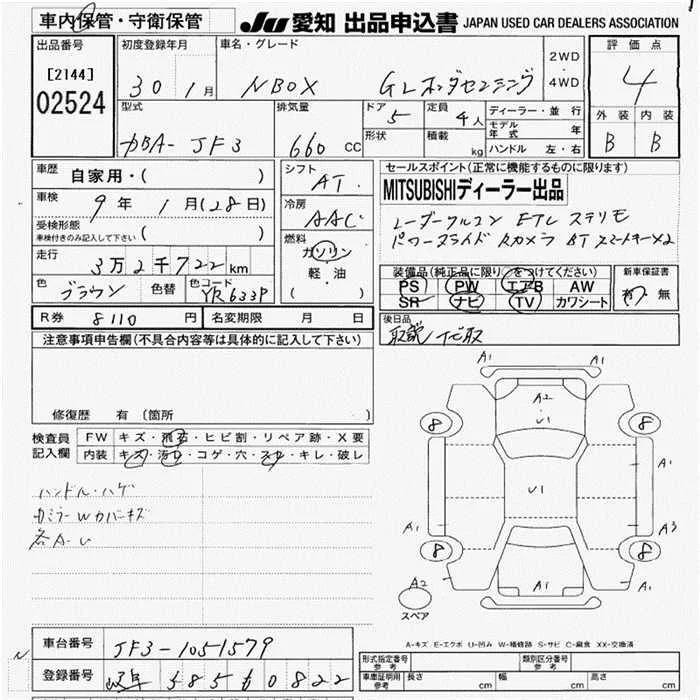 車内保管・守衛保管
JU 愛知 出品申込書 JAPAN USED CAR DEALERS ASSOCIATION
出品番号
[2144]
02524
初度登録年月
30 1月
車名・グレード
NBOX GLホンダセンシング
2WD
・
4WD
評価点
4
外装 内装
B B
型式
DBA- JF3
排気量
660 CC
ドア
5
形状
定員
4人
積載
kg
ディーラー・並行
モデル年式 年
ハンドル 左・右
車歴
自家用・( )
車検
9年 1月(28日)
受検形態
車検付きのみ記入して下さい ( )
走行
3万2千722km
色
ブラウン
色替
色コード
YR633P
シフト
AT
冷房
AAC
燃料
ガソリン
軽・油
( )
セールスポイント(正常に機能するものに限ります)
MITSUBISHIディーラー出品
レーダークルコン ETC ステリモ
パワースライド Rカメラ BT スマートキー×2
装備品(純正品に限り○をつけてください)
PS PW エアB AW
SR ナビ TV カワシート
新車保証書
有・無
R券 8110円
名変期限 月 日
後日品
取説 代取
注意事項申告欄(不具合内容等は具体的に記入して下さい)
修復歴 有(箇所 )
検査員
記入欄
FW キズ・飛石・ヒビ割・リペア跡・X要
内装 キズ・汚レ・コゲ・穴・スレ・キレ・破レ
ハンドル・ハゲ
各A-U
A1
A2
U1
A1
8 8
A1
U1
A1 A3
8 8
A2
A1
スペア
A1
A-キズ E-エクボ U-凹み W-補修跡 S-サビ C-腐食 XX-交換済
車台番号
JF3-1051579
登録番号
岐阜 585 る 0822
N
形式指定番号
参考
類別区分番号
参考
車庫証明用
参考
長さ cm
幅 cm
高さ cm